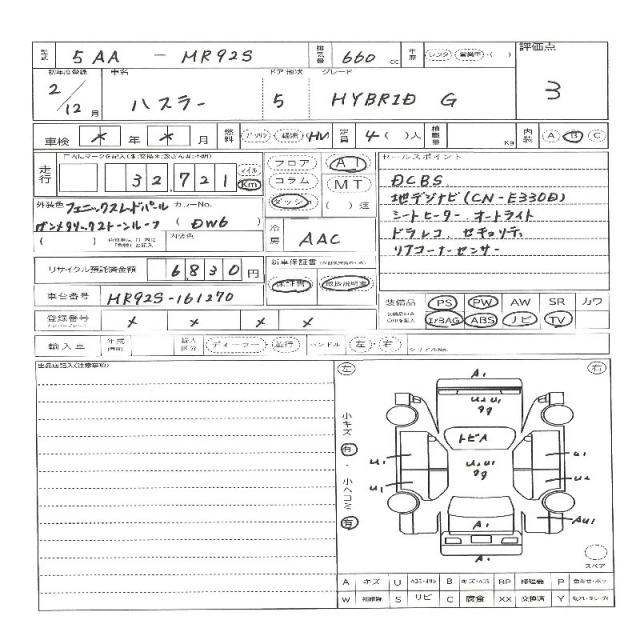 型式 5AA - MR92S 排気量 660 cc 車歴 レンタ 営業車・( ) 評価点
初年度登録 車名 ドア 形状 グレード
2/12月 ハスラー 5 HYBRID G 3
車検 * 年 * 月 燃料 ガソリン 軽油 HV 定員 4( )人 積載量 Kg 内装 A B C
走行 32,721 マイル Km
フロア AT
コラム MT
ダッシュ ( )速
セールスポイント
DCBS
地デジナビ(CN-E330D)
シートヒーター オートライト
ドラレコ セキュリティ
リアコーナーセンサー
外装色 フェニックスレッドパール カラーNo.
ガンメタリックストーンルーフ ( DW6 )
( ) 内装色
冷房 AAC
リサイクル預託済金額 6,830円
新車保証書
保証書 取扱説明書
車台番号 MR92S-161270
装備品 PS PW AW SR カワ
AirBAG ABS ナビ TV
登録番号 × × × ×
輸入車 年式 輸入区分 ディーラー・並行 ハンドル 左・右 シリアルNo.
出品店記入(注意事項)
左 右
小キズ 有・小ヘコミ 有
A1
U2 U1
99
トビA
U2 U1
99
U1
U1
U1
U2
A1
AU1
A1
スペア
A キズ U B RP P
W S サビ C 腐食 XX 交換済 Y